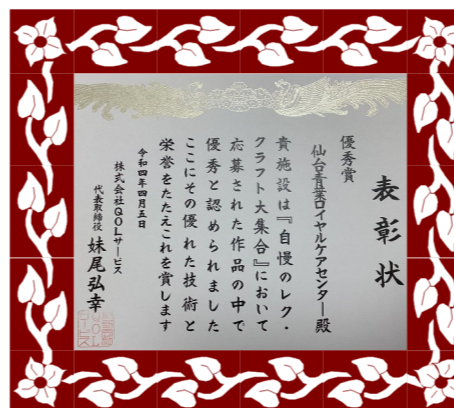 表彰状
優秀賞
仙台青葉ロイヤルケアセンター殿
貴施設は『自慢のレク・
クラフト大集合』において
応募された作品の中で
優秀と認められました
ここにその優れた技術と
栄誉をたたえこれを賞します
令和四年四月五日
株式会社QOLサービス
代表取締役 妹尾弘幸